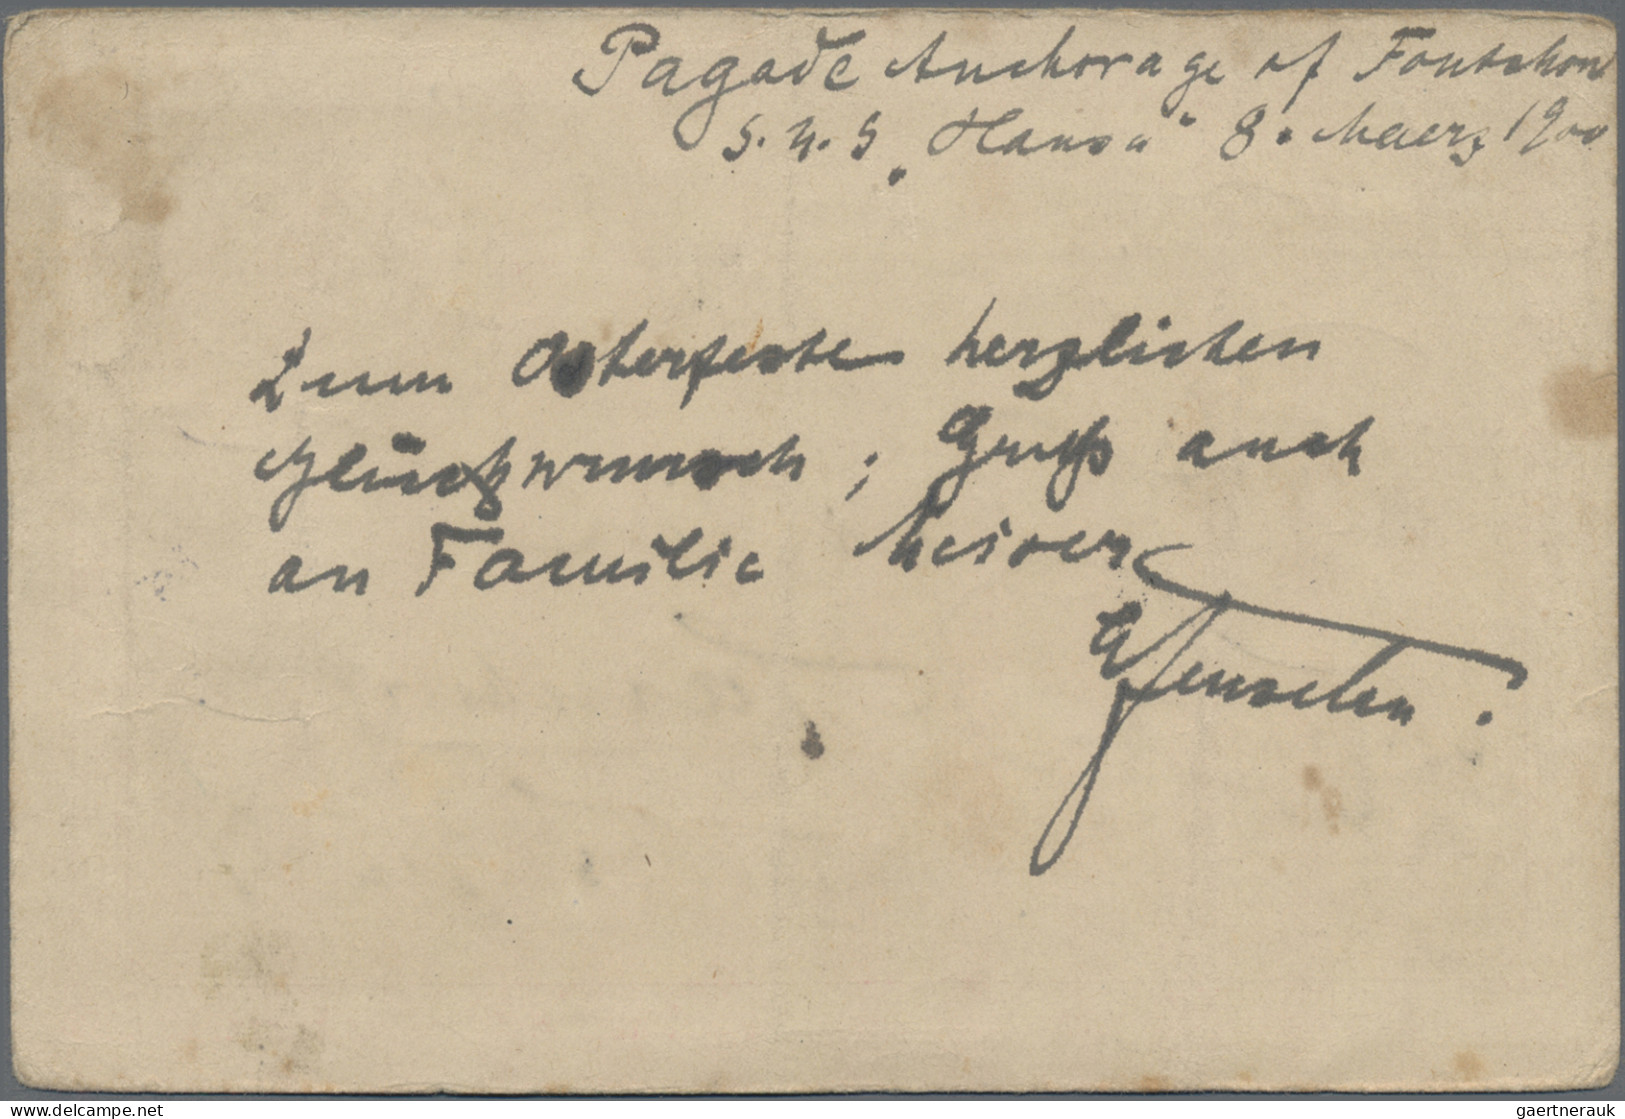 Pagode Anchorage of Foutschou
S.M.S „Hansa“ 8. Maerz 1900
Zum Osterfeste herzlichen
Glückwunsch; Gruß auch
an Familie
delcampe.net
gaertnerauk